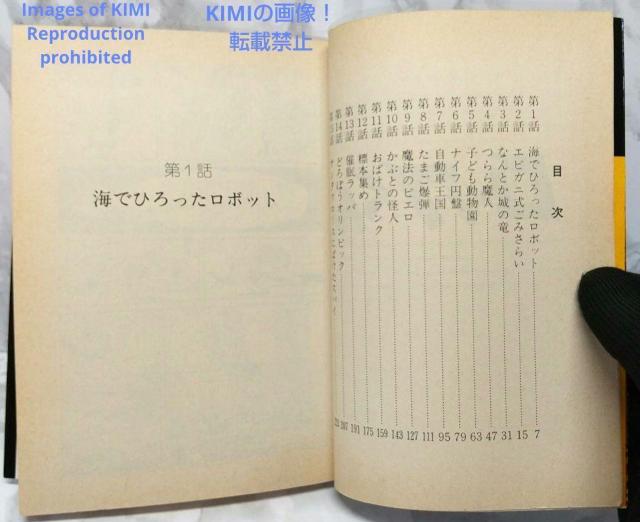 Images of KIMI
Reproduction
prohibited
KIMIの画像！
転載禁止
目次
第1話 海でひろったロボット 7
第2話 エビガニ式ごみさらい 15
第3話 なんとか城の竜 31
第4話 つらら魔人 47
第5話 子ども動物園 63
第6話 ナイフ円盤 79
第7話 自動車王国 95
第8話 たまご爆弾 111
第9話 魔法のピエロ 127
第10話 かぶとの怪人 143
第11話 おばけトランク 159
第12話 標本集め 175
第13話 催眠ラッパ 191
第14話 どろぼうオリンピック 207
第1話
海でひろったロボット